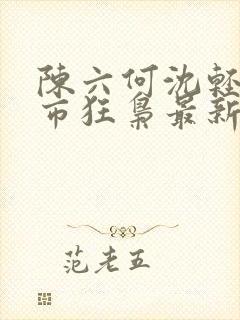 陳六何沈輕
市狂梟最新
范老五